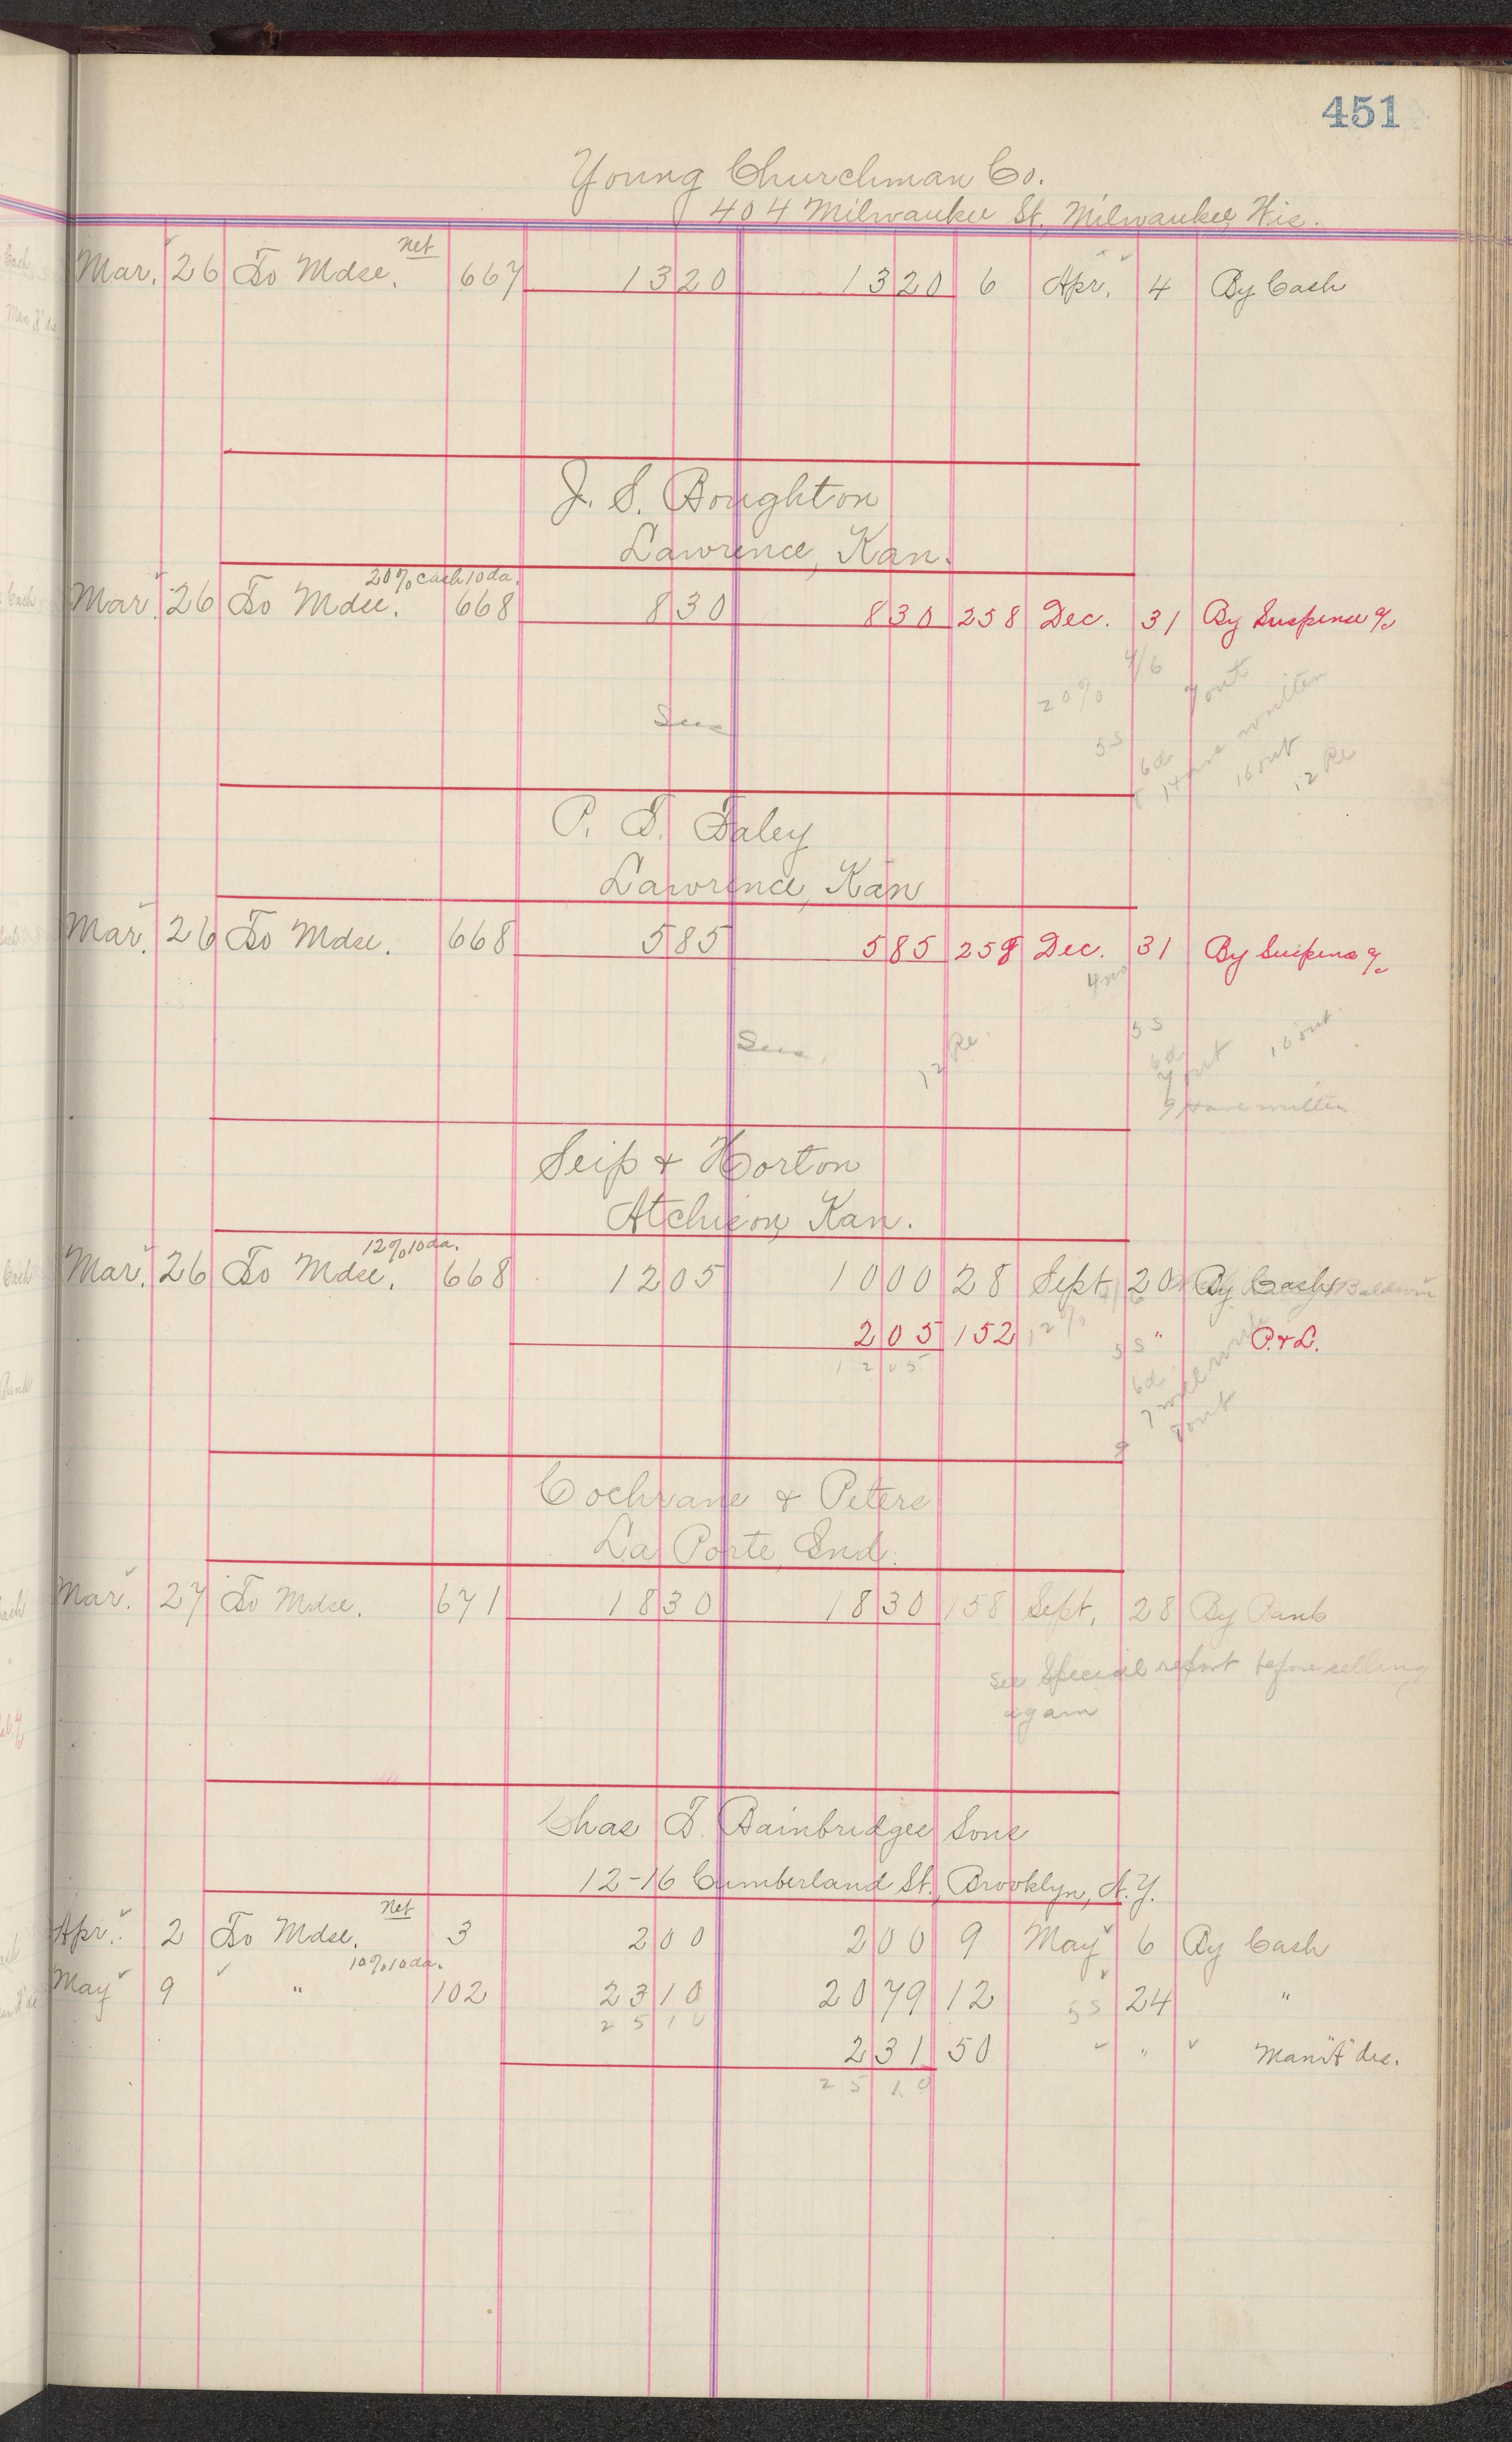 451
Young Churchman Co.
404 Milwaukee St., Milwaukee, Wis.
Net
Mar. 26 To Mdse. 667 13 20 13 20 6 Apr. 4 By Cash
J. S. Boughton
Lawrence, Kan.
20% cash 10 da.
Mar. 26 To Mdse. 668 8 30 8 30 258 Dec. 31 By Suspense a/c
4/6
20% 7 out
5s 6d 14 have written 10 out 12 Re
P. T. Foley
Lawrence, Kan
Mar. 26 To Mdse. 668 5 85 5 85 258 Dec. 31 By Suspense a/c
5s
12 Re. 6d 7 out 10 out
9 Have written
Seip & Horton
Atchison, Kan.
12% 10 da.
Mar. 26 To Mdse. 668 12 05 10 00 28 Sept. 20 By Cash Baldwin
2 05 152 12% 5s " P. & L.
12 05
6d
7 will write
8 out
9
Cochrane & Peters
La Porte, Ind.
Mar. 27 To Mdse. 671 18 30 18 30 158 Sept. 28 By Bank
see Special report before selling
again
Chas T. Bainbridges Sons
12-16 Cumberland St., Brooklyn, N.Y.
Net
Apr. 2 To Mdse. 3 2 00 2 00 9 May 6 By Cash
10% 10 da.
May 9 " 102 23 10 20 79 12 5s 24 "
25 10
2 31 50 " Man'f't dis.
25 10